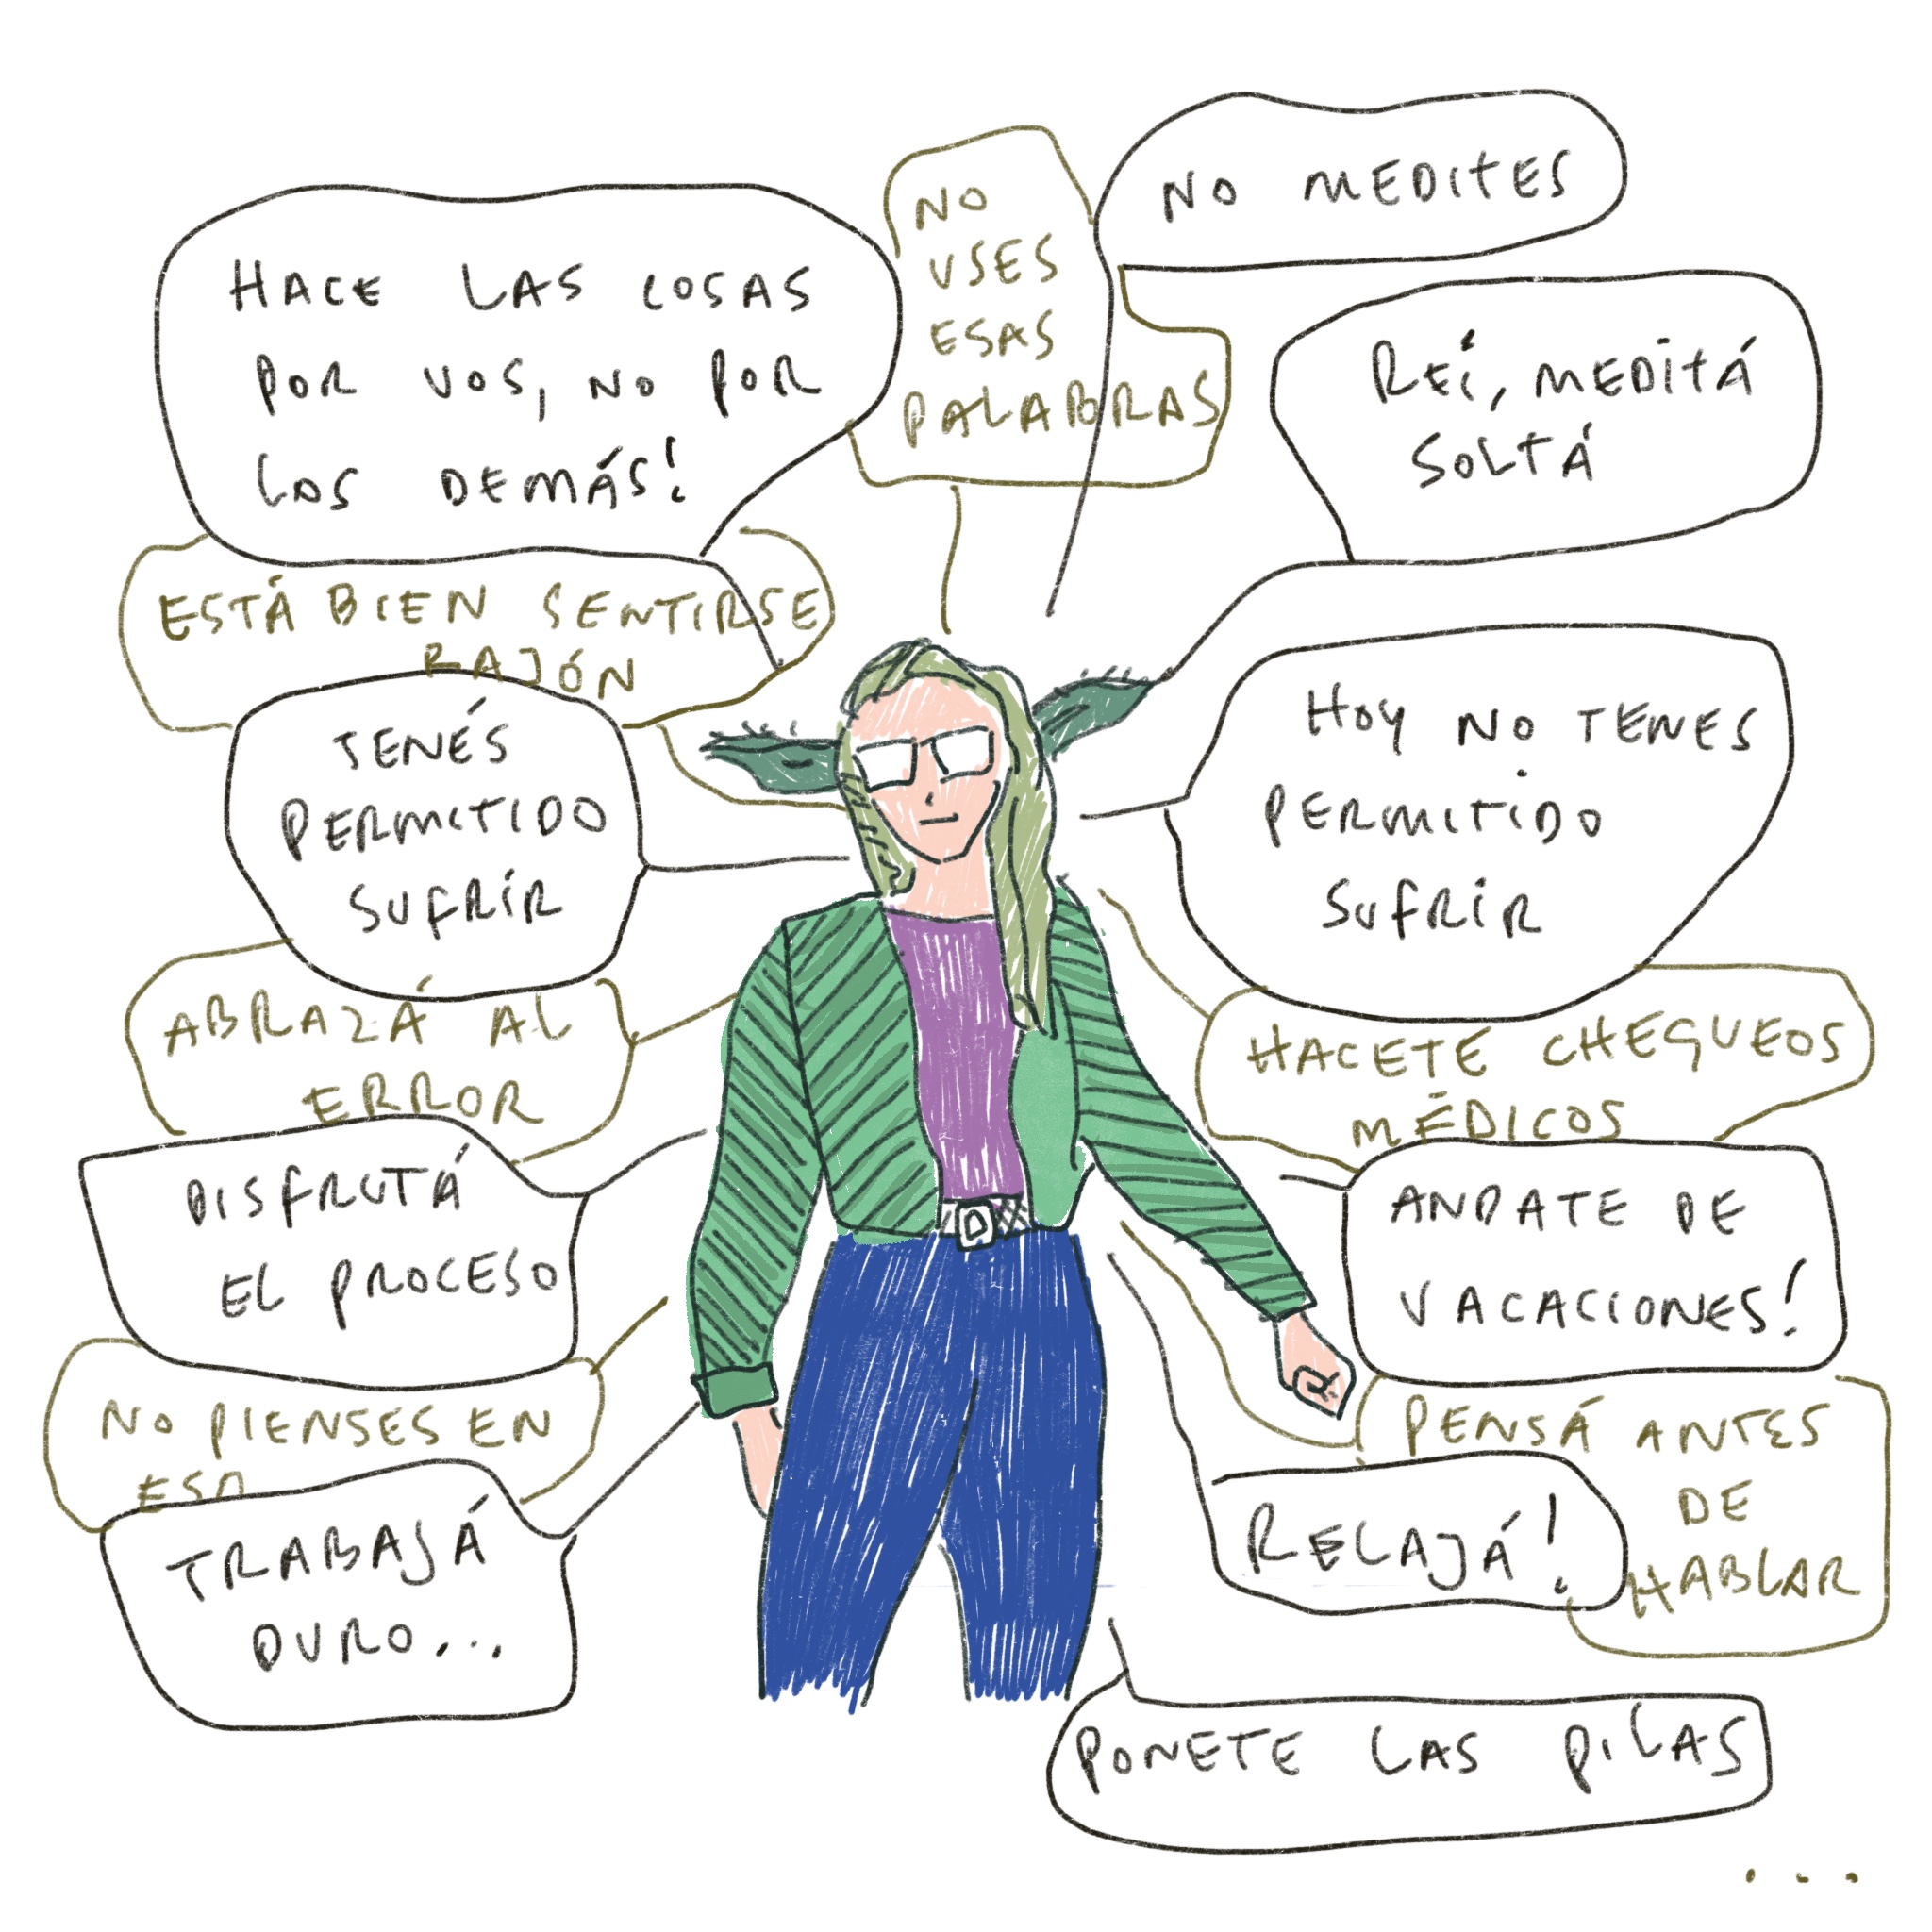 NO MEDITES
NO
USES
ESAS
PALABRAS
HACE LAS COSAS
POR VOS, NO POR
LOS DEMÁS!
REÍ, MEDITÁ
SOLTÁ
ESTÁ BIEN SENTIRSE
RAJÓN
TENÉS
PERMITIDO
SUFRIR
HOY NO TENES
PERMITIDO
SUFRIR
ABRAZÁ AL
ERROR
HACETE CHEQUEOS
MÉDICOS
DISFRUTÁ
EL PROCESO
ANDATE DE
VACACIONES!
NO PIENSES EN
ESO
PENSÁ ANTES
DE
HABLAR
TRABAJÁ
DURO...
RELAJÁ!
PONETE LAS PILAS
...